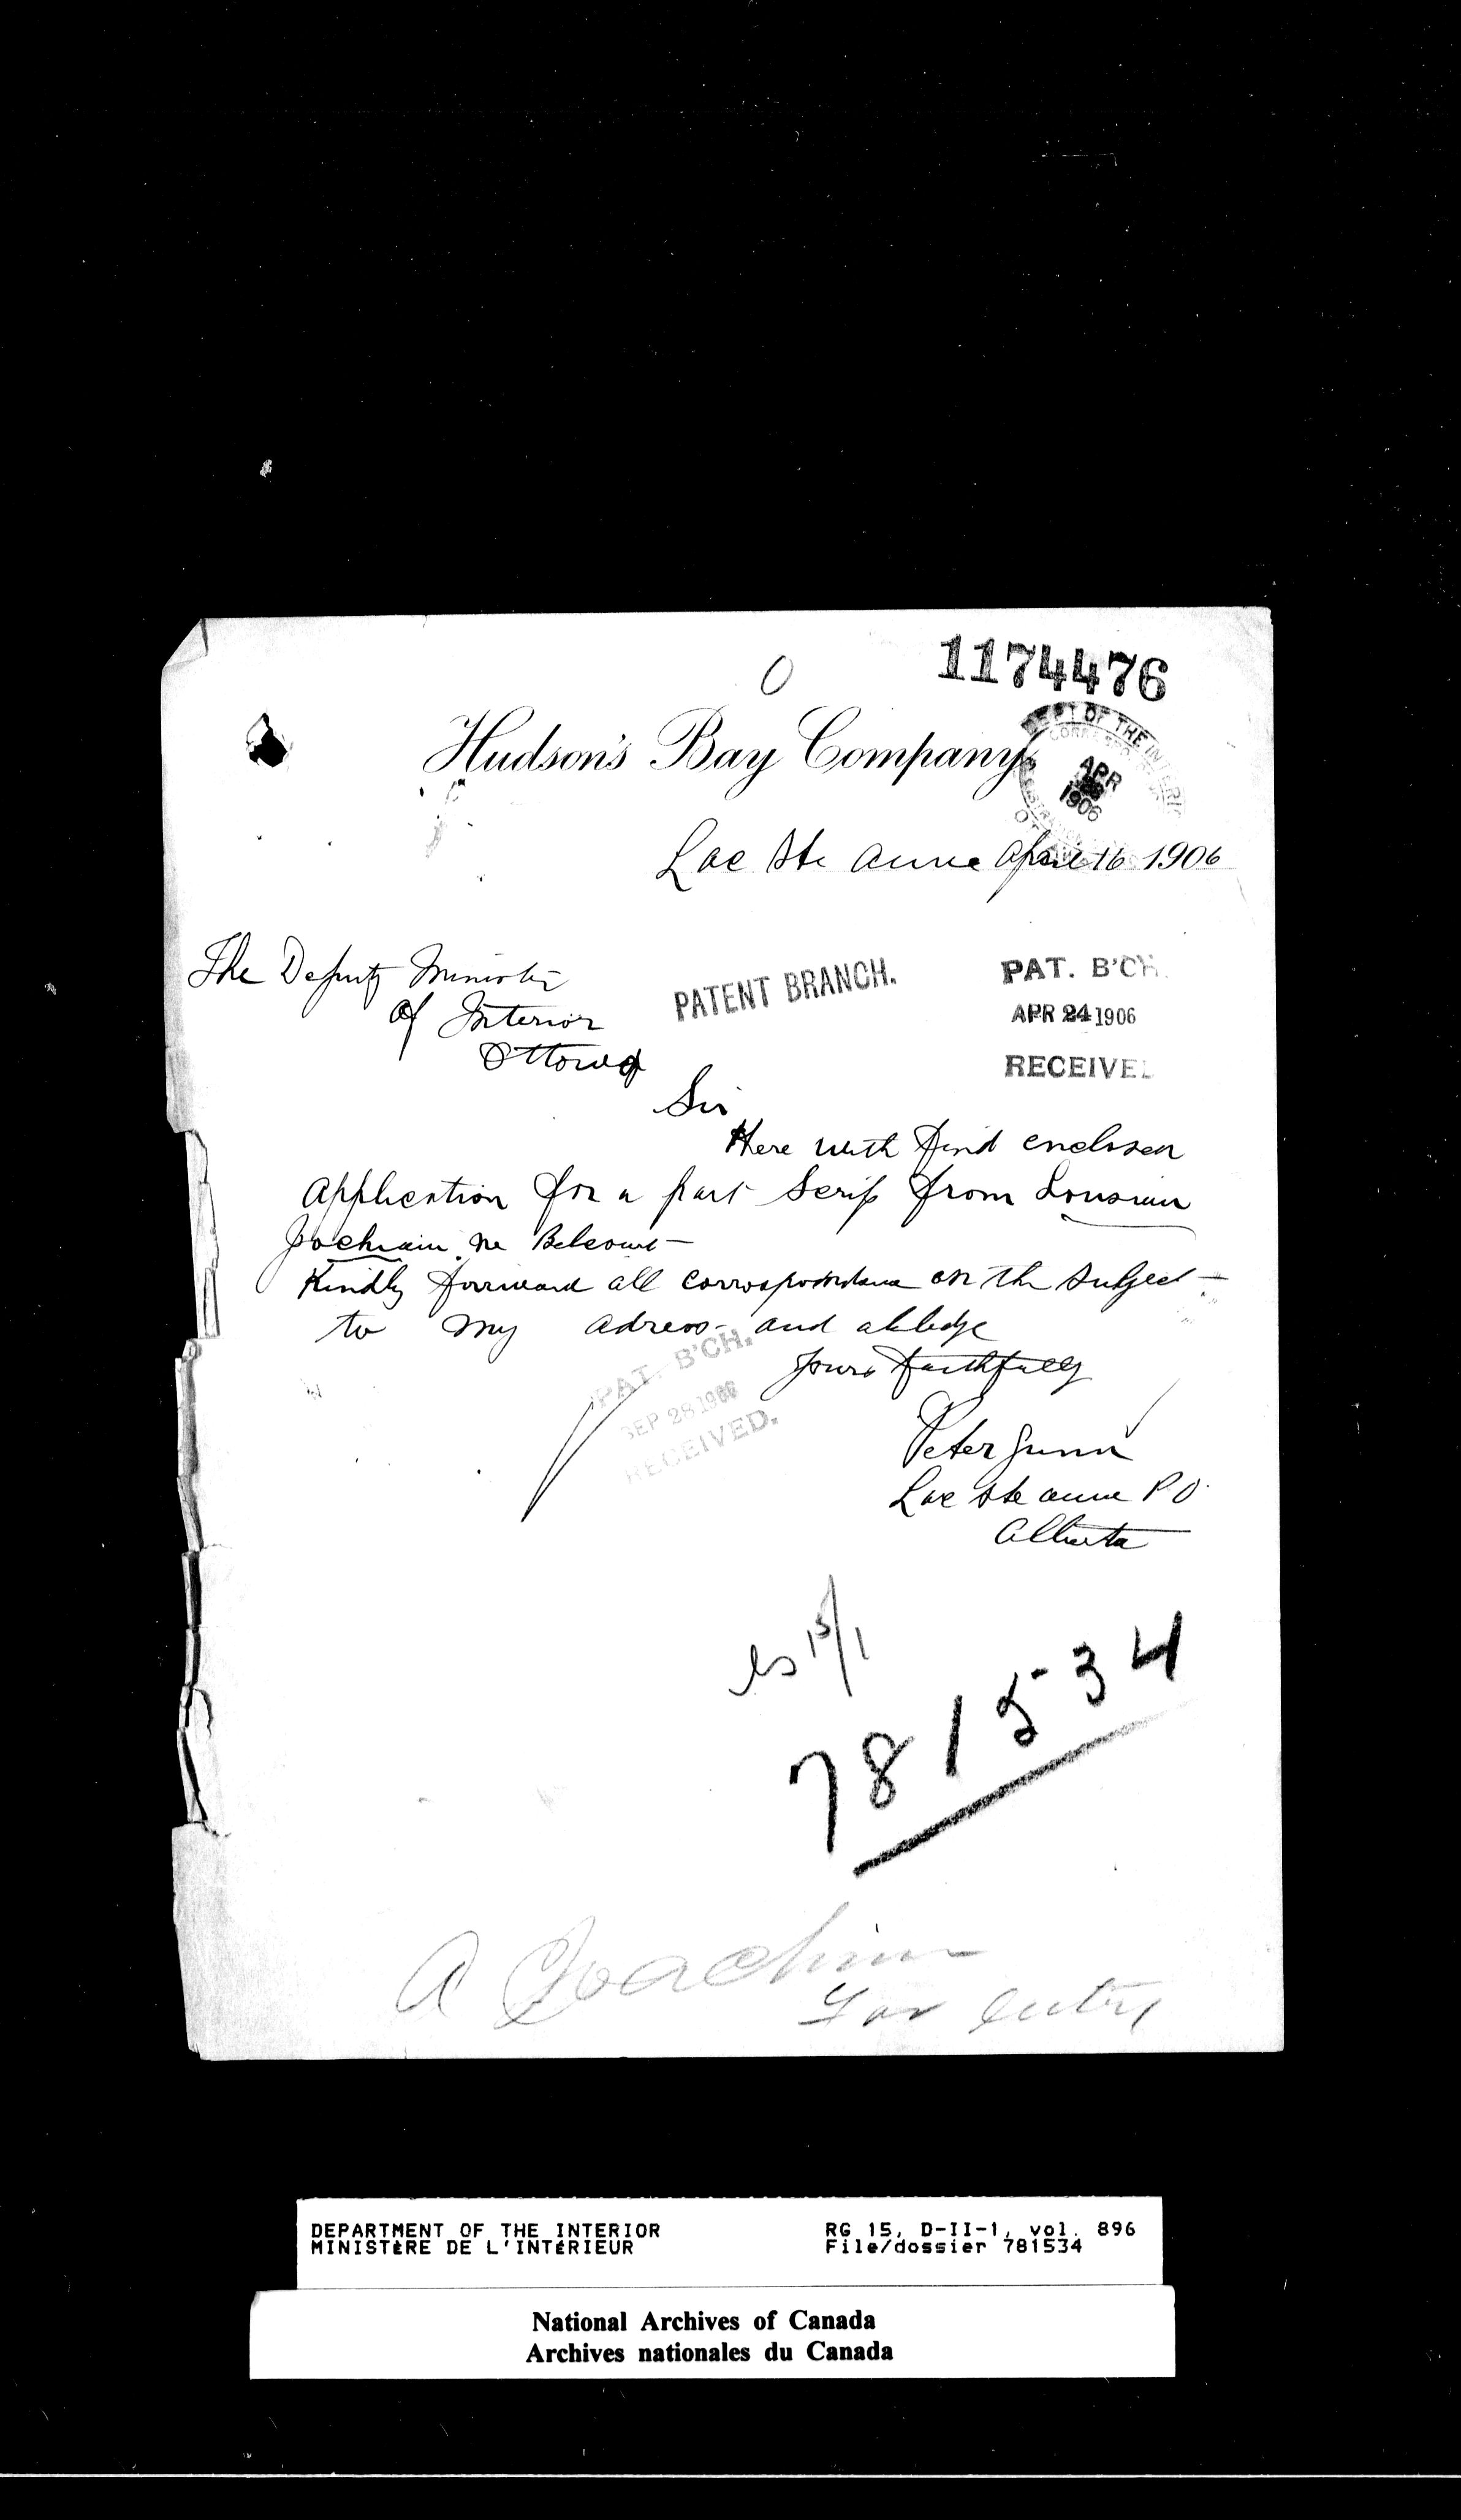 1174476
Hudson's Bay Company
DEPT OF THE INTERIOR
APR
1906
Lac Ste Anne April 16 1906
The Deputy Minister
of Interior
Ottawa
PATENT BRANCH.
PAT. B'CH.
APR 24 1906
RECEIVED
Sir
Here with find enclosed
Application for a part Scrip from
Jochuim ne Belcourt
Kindly forward all correspondance on the subject
to my adress and abledge
Yours faithfully
PAT. B'CH.
SEP 28 1906
RECEIVED.
Peter Gunn
Lac Ste Anne P O
Alberta
781534
A Joachim
For entry
DEPARTMENT OF THE INTERIOR
MINISTÈRE DE L'INTÉRIEUR
RG 15, D-II-1, vol. 896
File/dossier 781534
National Archives of Canada
Archives nationales du Canada